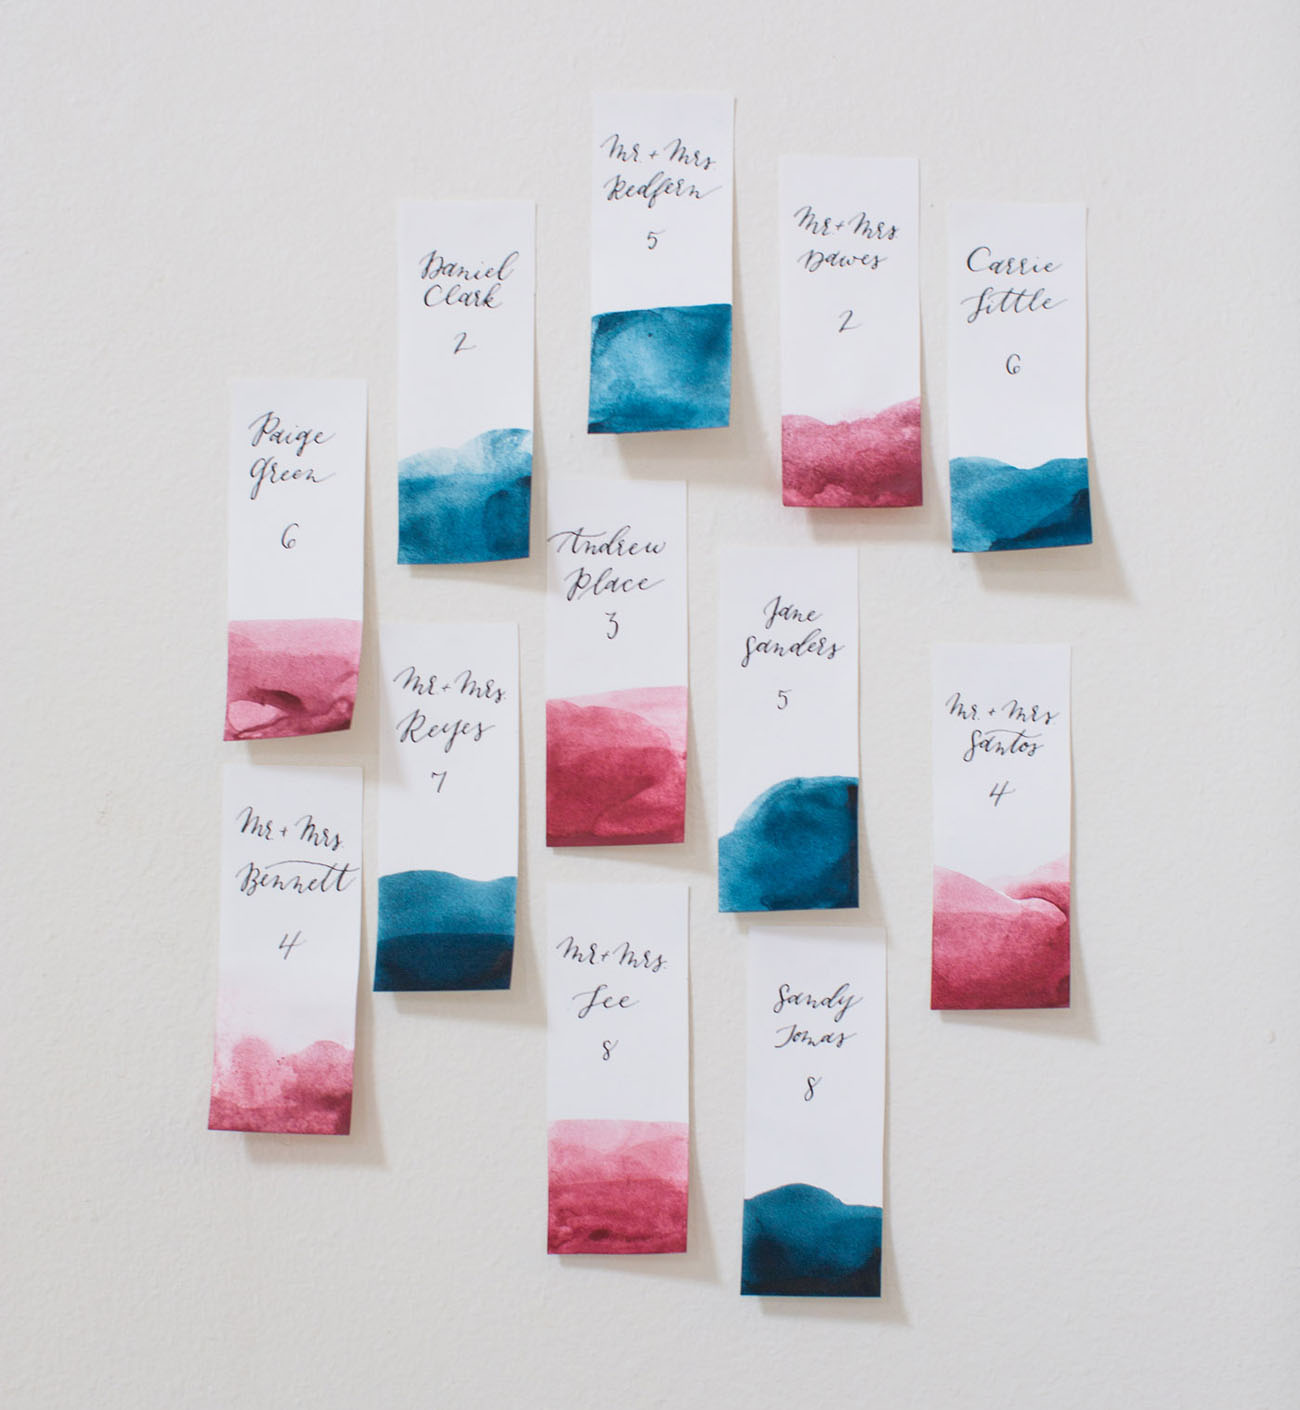 Mr. + Mrs.
Redfern
5
Mr. + Mrs.
Dawes
2
Daniel
Clark
2
Carrie
Little
6
Paige
Green
6
Andrew
Place
3
Jane
Sanders
5
Mr. + Mrs.
Reyes
7
Mr. + Mrs
Santos
4
Mr. + Mrs.
Bennett
4
Mr. + Mrs.
Lee
8
Sandy
Tomas
8